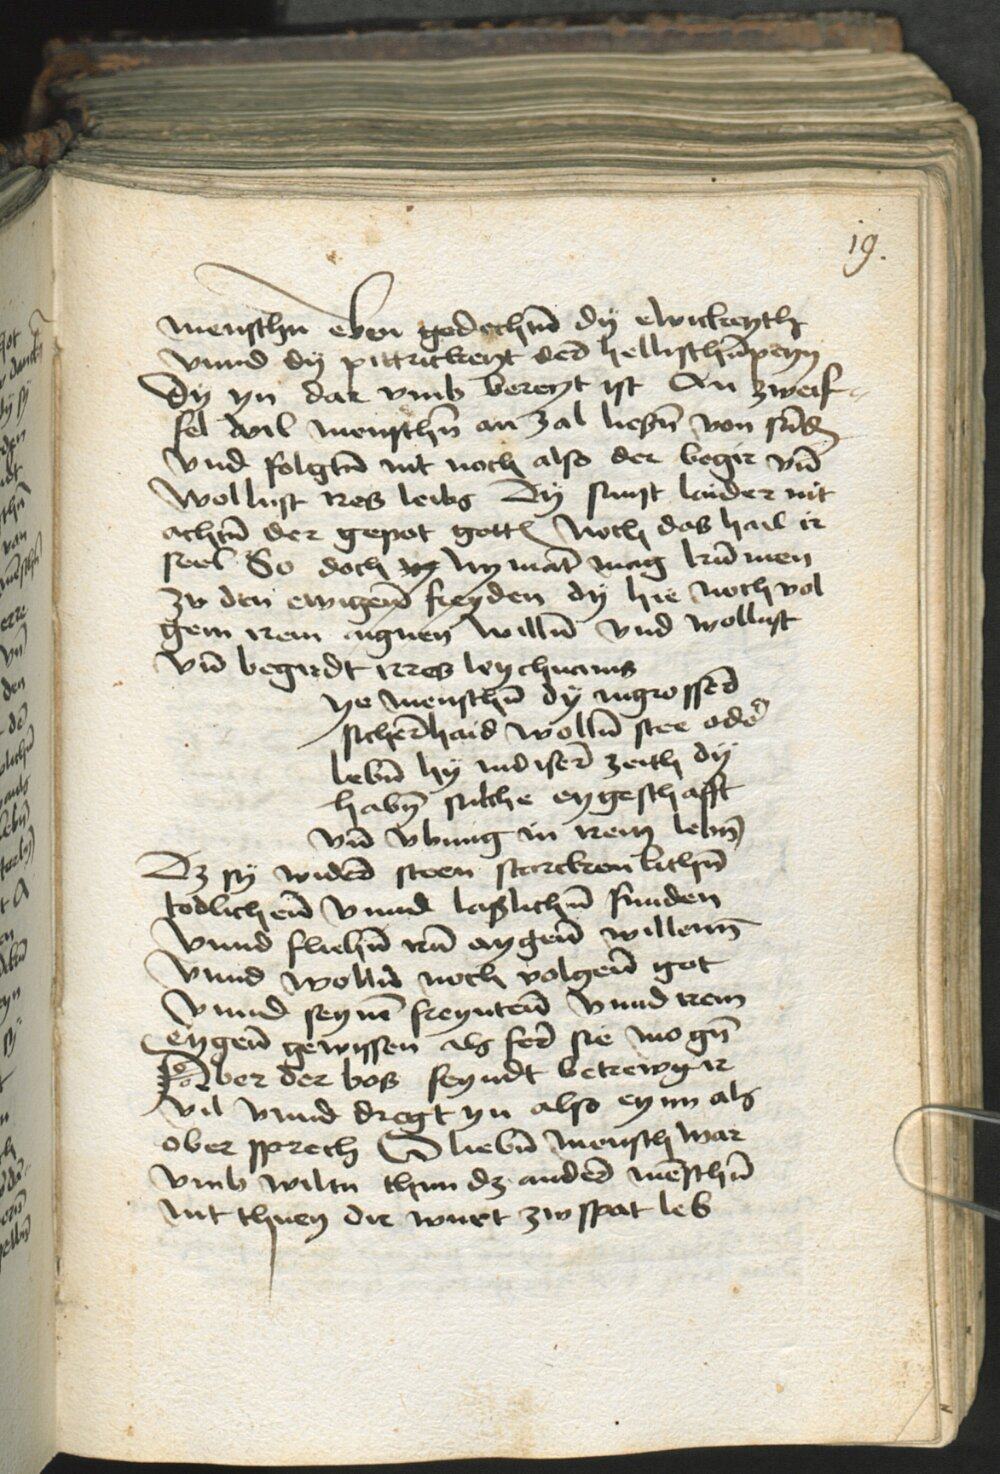 19.
menschn eben gedechñ dy ewickeyth
vnnd dy pittrickeyt der hellischñ peyn
Dy yn dar vmb bereyt ist An zweif-
fel wil menschñ an zal lieſn von
vnd folgtñ nit noch also der begir vñ
wollust res leibs Dy sunst laider nit
achtñ der gepot gotts Noch das hail ir
seel So doch nymāt mag kūmen
zv den ewigeñ freyden dy hie noch vol
gem irem aignen willñ vnd wollust
vñ begirdt irres leychnams
ye menschñ dy in grosser
sicherhaid wollñ stee oder
lebñ hy in diser zeith dy
habñ sulche eygeschafft
vñ vbung in irem lebñ
Dz sy wider steen starcken lichñ
todlicheñ vnnd laßlichñ sunden
vnnd fliehñ irñ aygeñ willenn
vnnd wollñ noch volgeñ got
vnnd seynē freynteñ vnnd irem
eygeñ gewissen als fer sie mogñ
Aber der boß feyndt betrewgt ir
vil vnnd dregt yn also eynn als
ober sprech O liebñ mensch war
vmb wiltu thun dz ander mēschñ
nit thuen dir wurt zw spat leb